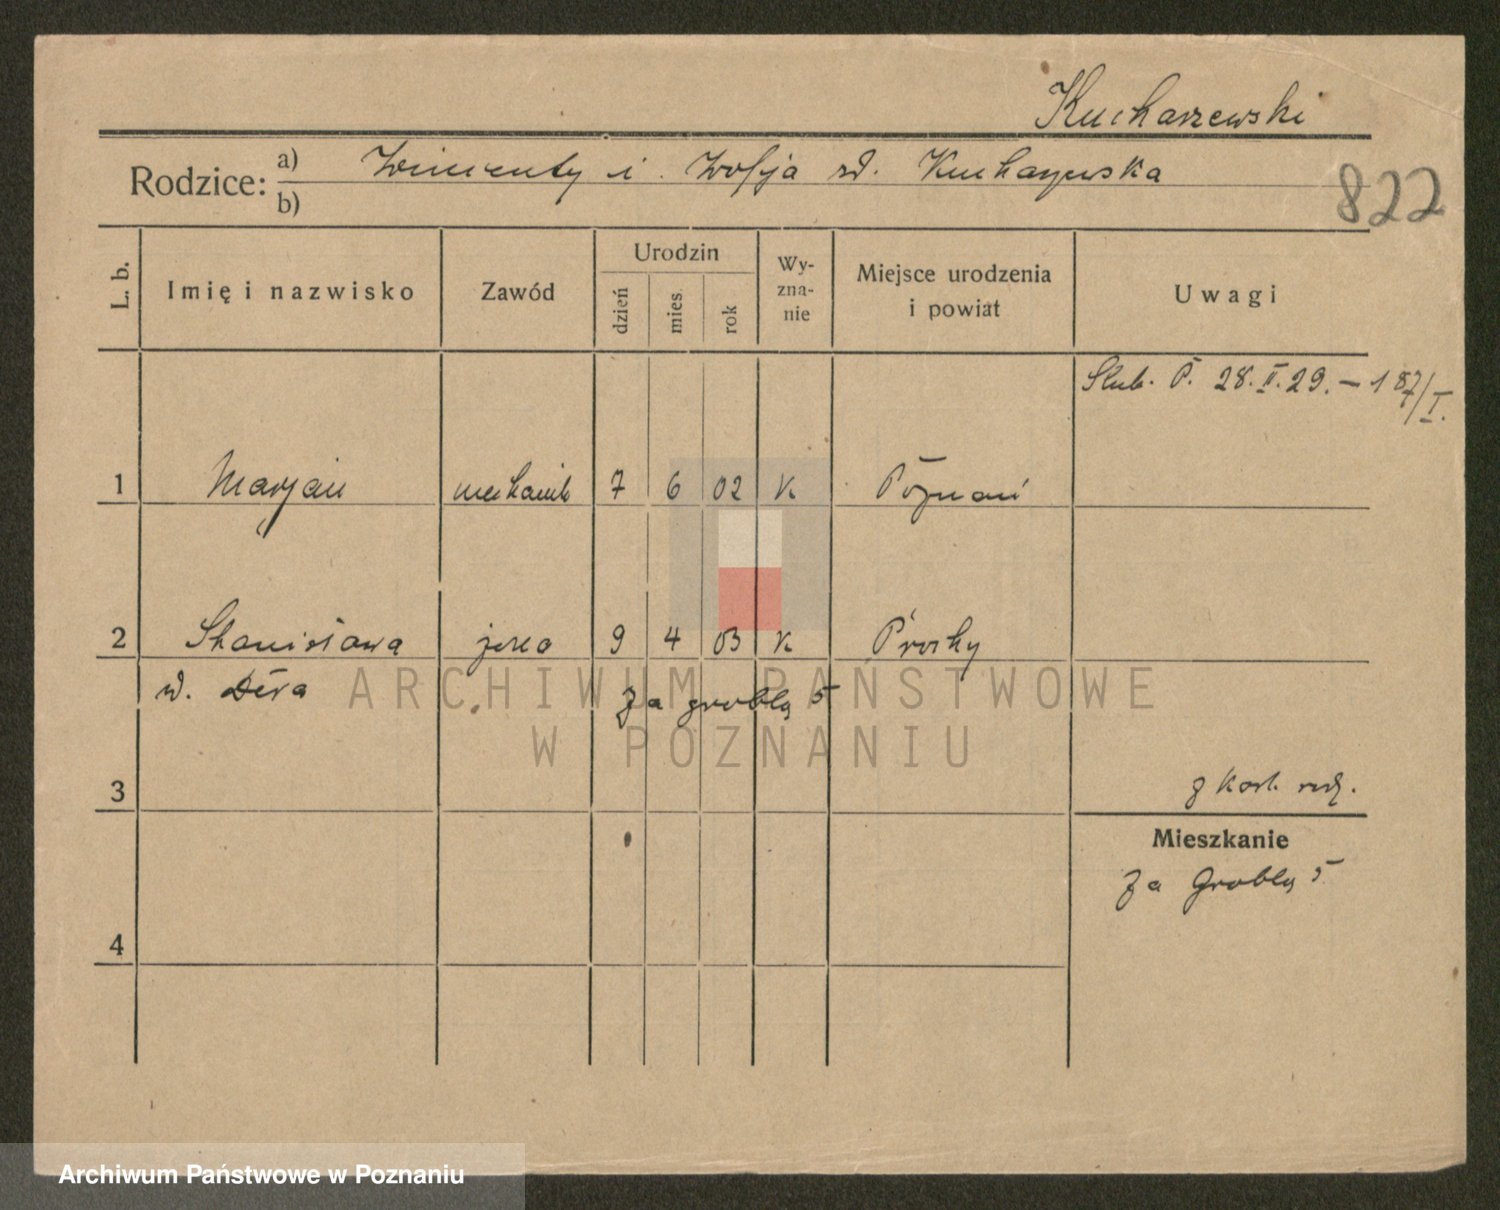 Kucharzewski
Rodzice: a) Wincenty i Zofja
b)
822
L. b.
Imię i nazwisko
Zawód
Urodzin
dzień
mies.
rok
Wy-
zna-
nie
Miejsce urodzenia
i powiat
Uwagi
Ślub. P. 28. II. 29. – 187/I.
1 Marjan mechanik 7 6 02 K Poznań
2 Stanisława jego 9 4 03 K Prochy
Za groblą 5
3
z kart. rodz.
Mieszkanie
Za Groblą 5
4
ARCHIWUM PAŃSTWOWE
W POZNANIU
Archiwum Państwowe w Poznaniu